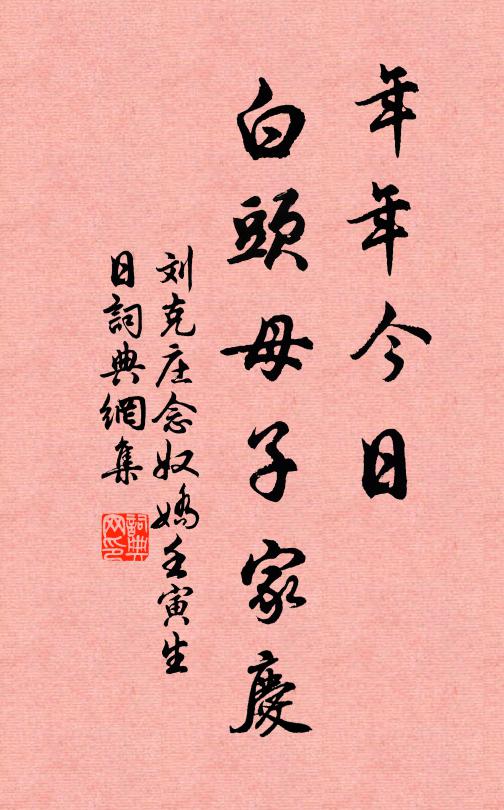 年年今日
白頭母子家慶
刘克庄念奴嬌壬寅生
日詞典網集
詞典网印